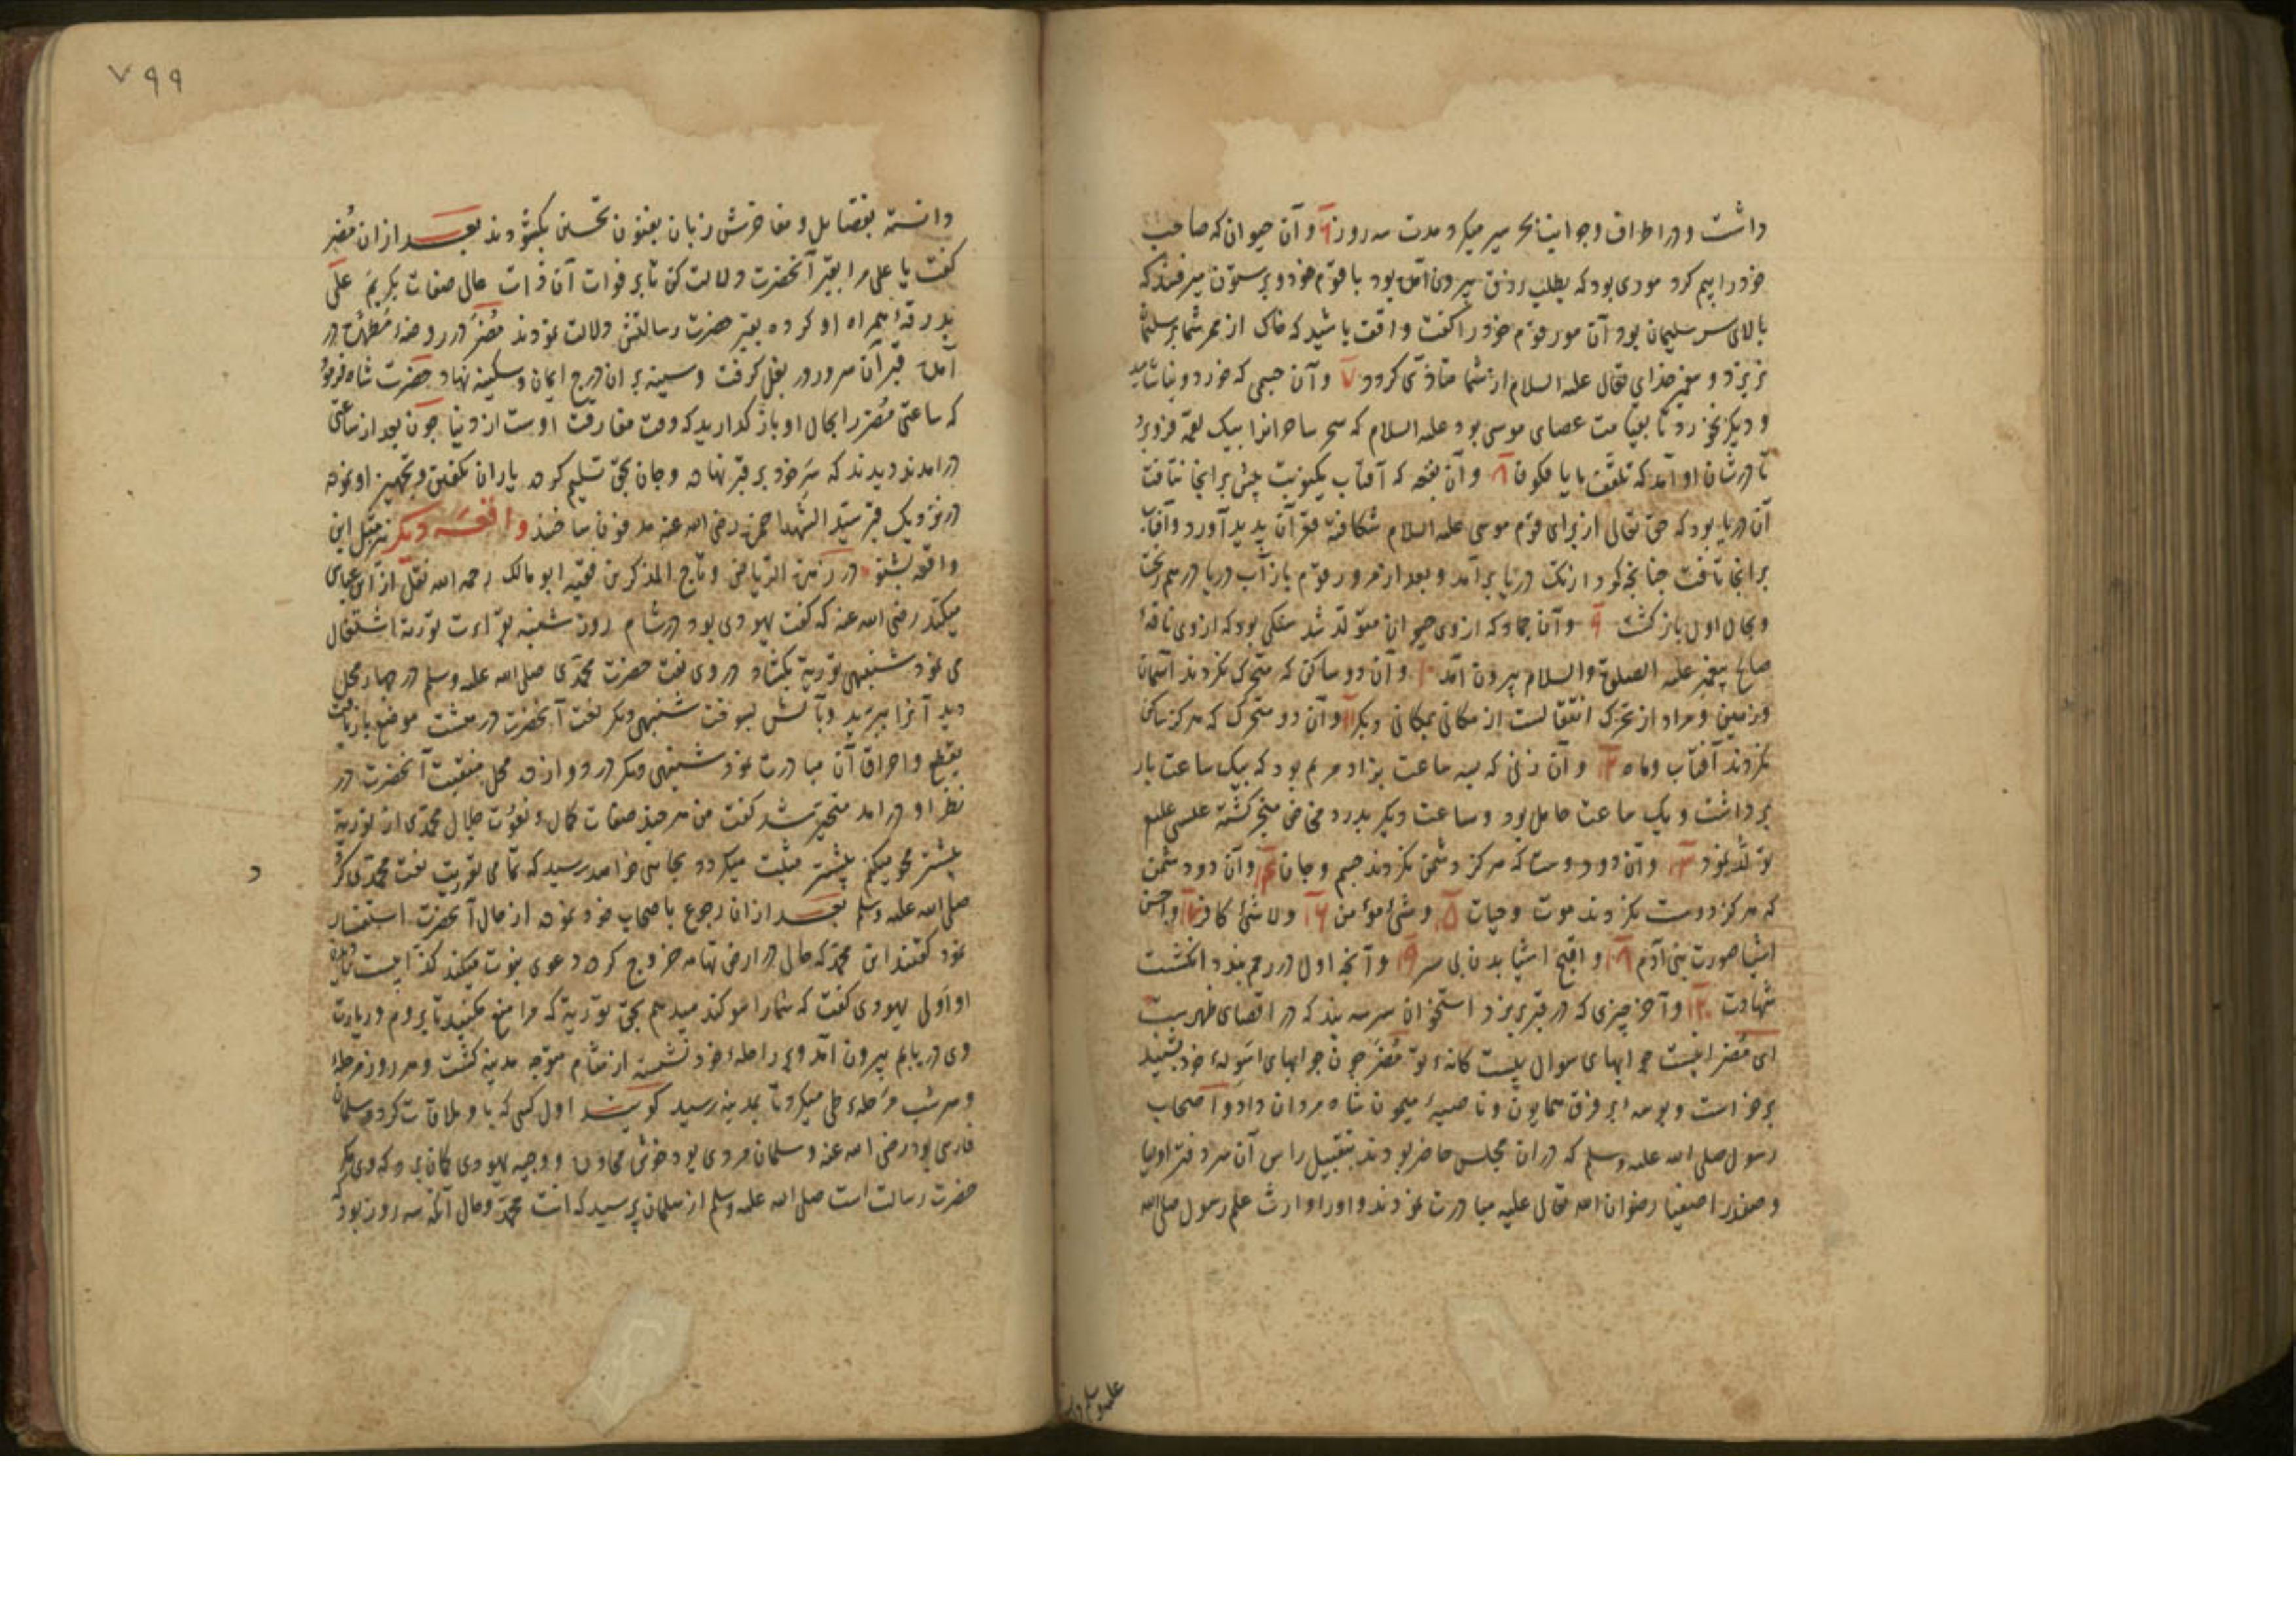 داشت و در اطراف و جوانب بحر سیر میکرد مدت سه روز ۶ و آن حیوان که صاحب
خود را بیم کرد موری بود که بطلب بیرون آمده بود با قوم خود و بر ستون میرفتند که
بالای سر سلیمان بود آن مور قوم خود را گفت واقف باشید که خاک از ممر شما بر سلیمان
نریزد و پیغمبر خدای تعالی علیه السلام از شما متاذی کردد ۷ و آن جسمی که خورد و نیاشامید
و دیگر نخورد تا بقیامت عصای موسی بود علیه السلام که سحر ساحرانرا بیک لقمه فرو برد
تا در شان او آمد که تلقف ما یافکون ۸ و آن بقعه که آفتاب یکنوبت بیش بر انجا نتافت
آن دریا بود که حق تعالی از برای قوم موسی علیه السلام شکافته قعر آن پدید آورد و آفتاب
بر انجا تافت چنانچه کرد از تک دریا برآمد و بعد از مرور قوم باز آب دریا درهم ریخت
و بحال اول باز کشت ۹ و آن جماد که ازوی حیوان متولد شد سنکی بود که ازوی ناقهٔ
صالح پیغمبر علیه الصلوة والسلام بیرون آمد ۱۰ و آن دو ساکن که متحرک نکردند آسمان
و زمین و مراد از تحرک انتقالست از مکانی بمکانی دیکر ۱۱ و آن دو متحرک که هرکز ساکن
نکردند آفتاب و ماه ۱۲ و آن زنی که بسه ساعت بزاد مریم بود که بیک ساعت بار
برداشت و یک ساعت حامل بود و ساعت دیکر بدرد مخاض منجر کشته عیسی علیه
تولد نمود ۱۳ و آن دو دوست که هرکز دشمن نکردند جسم و جان ۱۴ و آن دو دشمن
که هرکز دوست نکردند موت و حیات ۱۵ و شیٔ مؤمن ۱۶ ولا شیٔ کافر ۱۷ و احسن
اشیا صورت بنی آدم ۱۸ و اقبح اشیا بدن بی سر ۱۹ و آنچه اول در رحم بندد انکشت
شهادت ۲۰ و آخر چیزی که در قبر بریزد استخوان سر سه بند که در اقصای ظهرست
ای مضر اینست جوابهای سوال بیست کانهٔ تو مضر چون جوابهای اسولهٔ خود بشنید
برخواست و بوسه بر فرق همایون و ناصیهٔ میمون شاه مردان داد و اصحاب
رسول صلی الله علیه وسلم که دران مجلس حاضر بودند بتقبیل راس آن سر دفتر اولیا
و صفدر اصفیا رضوان الله تعالی علیه مبادرت نمودند و اورا وارث علم رسول صلی الله
علیه وسلم
۷۹۹
دانسته بفضایل و مفاخرتش زبان بفنون تحسین بکشودند بعد ازان مضر
کفت یا علی مرا بقبر آنحضرت دلالت کن تا بر فوات آن ذات عالی صفات بکریم علی
بدرقهٔ همراه او کرده بقبر حضرت رسالتش دلالت نمودند مضر در روضهٔ مطهره در
آمده قبر آن سرور در بغل کرفت و سینه بران درج ایمان و سکینه نهاد حضرت شاه فرمود
که ساعتی مضر را بحال او باز کذارید که وقت مفارقت اوست از دنیا چون بعد از ساعتی
در امدند دیدند که سر خود بر قبر نهاده و جان بحق تسلیم کرده یاران تکفین و تجهیز او نموده
در نزدیک قبر سید الشهدا حمزه رضی الله عنه مدفون ساختند واقعهٔ دیکر نیز مثل این
واقعه بشنو در زهرة الریاض و تاج المذکرین فقیه ابو مالک رحمه الله نقل از ابن عباس
میکند رضی الله عنه که کفت یهودی بود در شام روز شنبه بقراءت توریة اشتغال
می نمود شنبهی توریة بکشاد در وی نعت حضرت محمدی صلی الله علیه وسلم در چهار محل
دید آنرا ببرید و بآتش بسوخت شنبهی دیکر نعت آنحضرت در هشت موضع بازیافت
بقطع و احراق آن مبادرت نمود شنبهی دیکر در دوازده محل منقبت آنحضرت در
نظر او در امد متحیر شد کفت من هر چند صفات کمال و نعوت جمال محمدی از توریة
بیشتر محو میکنم بیشتر مثبت میکردد بجایی خواهد رسید که تمامی توریت نعت محمدی کردد
صلی الله علیه وسلم بعد ازان رجوع باصحاب خود نموده از حال آنحضرت استفسار
نمود کفتند این محمد که حالی در ارض تهامه خروج کرده دعوی نبوت میکند کذابیست نادیدن
او اولی یهودی کفت که شمارا سوکند میدهم بحق توریة که مرا منع مکنید تا بروم و زیارت
وی دریابم بیرون آمد و بر راحلهٔ خود نشسته از شام متوجه مدینه کشت و هر روز مرحلهٔ
و هر شب مرحلهٔ طی میکرد تا بمدینه رسید کویند اول کسی که با و ملاقات کرد سلمان
فارسی بود رضی الله عنه و سلمان مردی بود خوش محاوره و وجیه یهودی کمان برد که وی مکر
حضرت رسالت است صلی الله علیه وسلم از سلمان پرسید که انت محمد و حال آنکه سه روز بود که